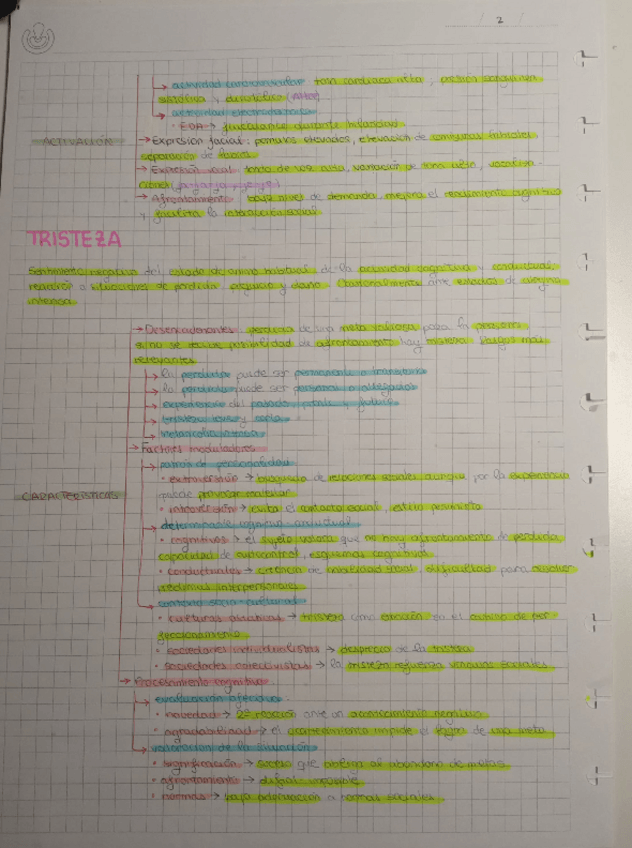 2
actividad cardiovascular: tasa cardíaca alta, presión sanguínea
sistólica y diastólica
actividad electrodérmica
· EDA → fluctuante durante
ACTIVACIÓN
→ Expresión facial: pómulos elevados, elevación de comisuras labiales
separación de
→ Expresión vocal: tono de voz alto, variación de tono alto,
→ Afrontamiento: bajo nivel de demanda, mejora el rendimiento cognitivo
y facilita la interacción social
TRISTEZA
Sentimiento negativo del estado de ánimo habitual de la actividad cognitiva y conductual,
reacción a situaciones de pérdida, y daño. Ocasionalmente ante estados de
intensa
→ Desencadenantes: pérdida de una meta valiosa para la persona
si no se recibe posibilidad de afrontamiento hay tristeza. Rasgos más
relevantes
→ la pérdida puede ser permanente o transitoria
→ la pérdida puede ser personal o allegados
→ experiencias del pasado, pnte y futuro
→ tristeza
→ melancolía intensa
→ Factores moduladores
→ patrón de personalidad
· extraversión → búsqueda de relaciones sociales aunque por la experiencia
puede provocar malestar
· introversión → evita el contacto social, estilo pesimista
→ determinante cognitivo conductual
· cognitivos → el sujeto valora que no hay afrontamiento de pérdida
capacidad de autocontrol, esquemas cognitivos
· conductuales → creencia de inhabilidad social, dificultad para resolver
problemas interpersonales
→ contexto socio-cultural
CARACTERÍSTICAS
· culturas asiáticas → tristeza como emoción en el camino de per-
feccionamiento
· sociedades individualistas → desprecio de la tristeza
· sociedades colectivistas → la tristeza refuerza vínculos sociales
→ Procesamiento cognitivo
→ evaluación afectiva:
· novedad → 2ª reacción ante un acontecimiento negativo
· agradabilidad → el acontecimiento impide el logro de una meta
→ valoración de la situación
· significación → suceso que obliga al abandono de metas
· afrontamiento → difícil imposible
· normas → baja adecuación a normas sociales.